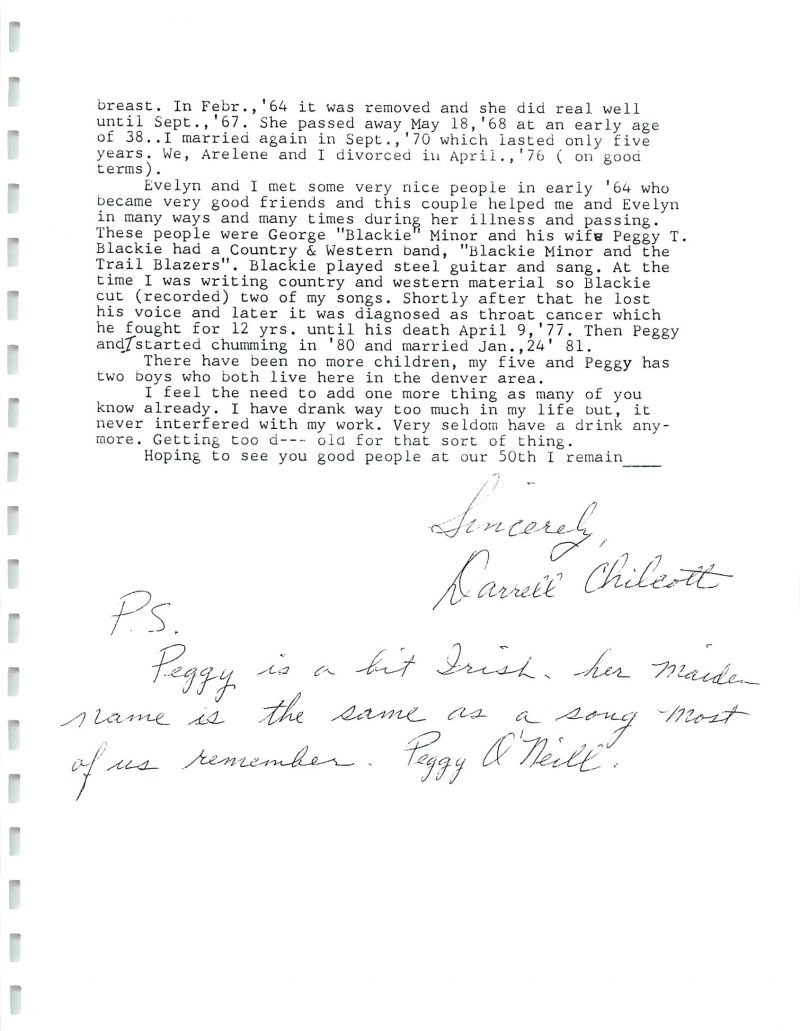 breast. In Febr.,'64 it was removed and she did real well
until Sept.,'67. She passed away May 18,'68 at an early age
of 38..I married again in Sept.,'70 which lasted only five
years. We, Arelene and I divorced in April.,'76 ( on good
terms).
Evelyn and I met some very nice people in early '64 who
became very good friends and this couple helped me and Evelyn
in many ways and many times during her illness and passing.
These people were George "Blackie" Minor and his wife Peggy T.
Blackie had a Country & Western band, "Blackie Minor and the
Trail Blazers". Blackie played steel guitar and sang. At the
time I was writing country and western material so Blackie
cut (recorded) two of my songs. Shortly after that he lost
his voice and later it was diagnosed as throat cancer which
he fought for 12 yrs. until his death April 9,'77. Then Peggy
and I started chumming in '80 and married Jan.,24' 81.
There have been no more children, my five and Peggy has
two boys who both live here in the denver area.
I feel the need to add one more thing as many of you
know already. I have drank way too much in my life but, it
never interfered with my work. Very seldom have a drink any-
more. Getting too d--- old for that sort of thing.
Hoping to see you good people at our 50th I remain____
Sincerely,
Darrell Chilcott
P.S.
Peggy is a bit Irish. her maiden
name is the same as a song most
of us remember. Peggy O'Neill.